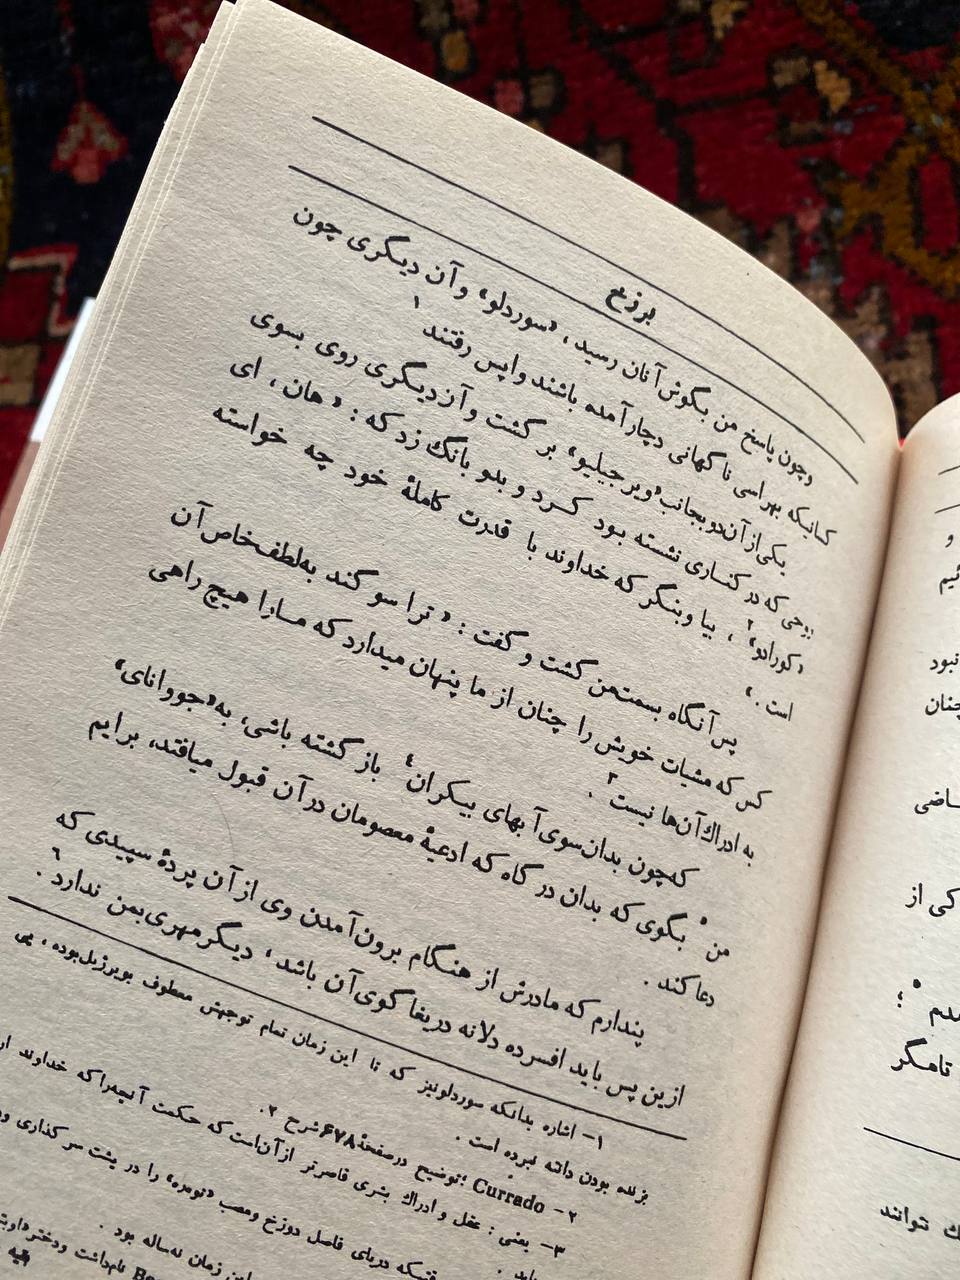 برزخ
وچون پاسخ من بگوش آنان رسید، «سوردلو» و آن دیگری چون
کسانیکه بهراسی ناگهانی دچار آمده باشند واپس رفتند ۱
یکی از آن دو بجانب «ویرجیلیو» بر گشت و آن دیگری روی بسوی
روحی که در کناری نشسته بود کرد و بدو بانگ زد که : « هان ، ای
«کورادو» ۲ ، بیا و بنگر که خداوند با قدرت کاملهٔ خود چه خواسته
است . »
پس آنگاه بسمت من گشت و گفت : « ترا سوگند به لطف خاص آن
کس که مشیات خویش را چنان از ما پنهان میدارد که مارا هیچ راهی
به ادراك آن ها نیست ۳ .
که چون بدان سوی آبهای بیکران ۴ باز گشته باشی، به «جووانای»
من ۵ بگوی که بدان در گاه که ادعیهٔ معصومان در آن قبول میافتد، برایم
دعا کند .
پندارم که مادرش از هنگام برون آمدن وی از آن پردهٔ سپیدی که
ازین پس باید افسرده دلانه دریغا گوی آن باشد ، دیگر مهری بمن ندارد ۶ .
۱– اشاره بدانکه سوردلو نیز که تا این زمان تمام توجهش معطوف بویرژیل بوده ، پی
بزنده بودن دانته نبرده است .
۲– Currado ؛ توضیح در صفحهٔ ۶۷۸ شرح ۲.
۳– یعنی : عقل و ادراك بشری قاصرتر از آن است که حکمت آنچه را که خداوند
دریای فاصل دوزخ ومصب «تومره» را در پشت سر گذاری
این زمان نه ساله بود .
نام داشت ودختر
بقیه
و
نبود
چنان
کی از
دم ۵ ؛
تا مگر
توانند